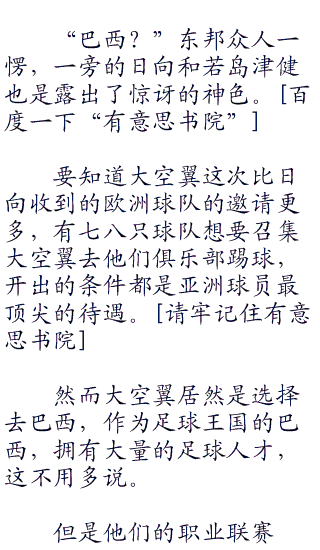 “巴西？”东邦众人一
愣，一旁的日向和若岛津健
也是露出了惊讶的神色。[百
度一下“有意思书院”]
要知道大空翼这次比日
向收到的欧洲球队的邀请更
多，有七八只球队想要召集
大空翼去他们俱乐部踢球，
开出的条件都是亚洲球员最
顶尖的待遇。[请牢记住有意
思书院]
然而大空翼居然是选择
去巴西，作为足球王国的巴
西，拥有大量的足球人才，
这不用多说。
但是他们的职业联赛